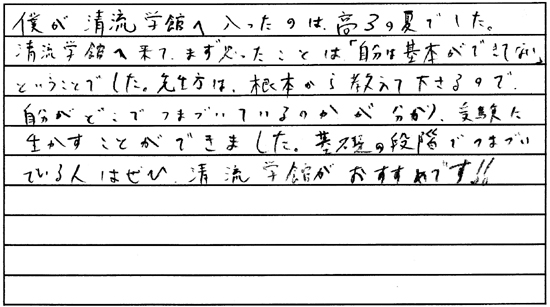 僕が清流学館へ入ったのは、高3の夏でした。
清流学館へ来て、まず思ったことは「自分は基本ができてない」
ということでした。先生方は、根本から教えて下さるので、
自分がどこでつまづいているのかが分かり、受験に
生かすことができました。基礎の段階でつまづい
ている人はぜひ、清流学館がおすすめです!!